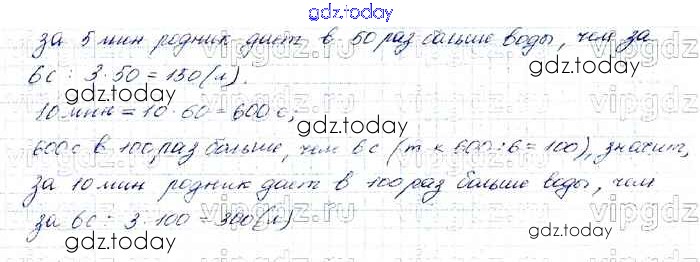 gdz.today
за 5 мин родник дает в 50 раз больше воды, чем за
6с : 3·50 = 150 (л).
gdz.today
10 мин = 10·60 = 600 с;
gdz.today
600с в 100 раз больше, чем 6с (т.к 600:6=100), значит,
за 10 мин родник дает в 100 раз больше воды, чем
за 6с : 3·100 = 300 (л)
gdz.today
gdz.today
vipgdz.ru
vipgdz.ru
vipgdz.ru